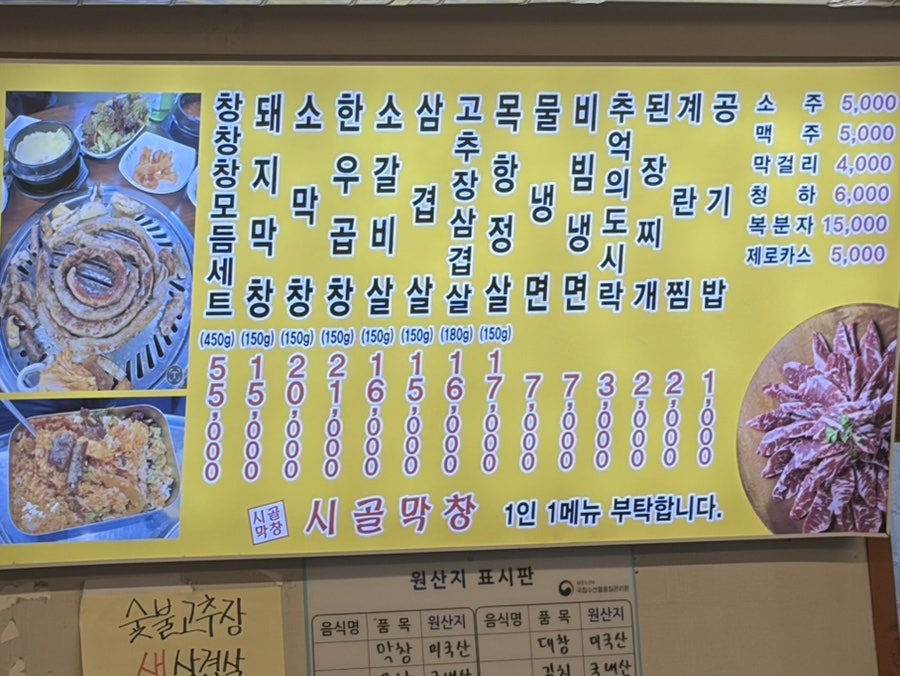 창창창모듬세트 (450g) 55,000
돼지막창 (150g) 15,000
소막창 (150g) 20,000
한우곱창 (150g) 21,000
소갈비살 (150g) 16,000
삼겹살 (150g) 15,000
고추장삼겹살 (180g) 16,000
목항정살 (150g) 17,000
물냉면 7,000
비빔냉면 7,000
추억의도시락 3,000
된장찌개 2,000
계란찜 2,000
공기밥 1,000
소주 5,000
맥주 5,000
막걸리 4,000
청하 6,000
복분자 15,000
제로카스 5,000
시골막창
시골막창 1인 1메뉴 부탁합니다.
숯불고추장
생삼겹살
원산지 표시판
국립수산물품질관리원
음식명 품목 원산지 음식명 품목 원산지
막창 미국산 대창 미국산
김치 국내산